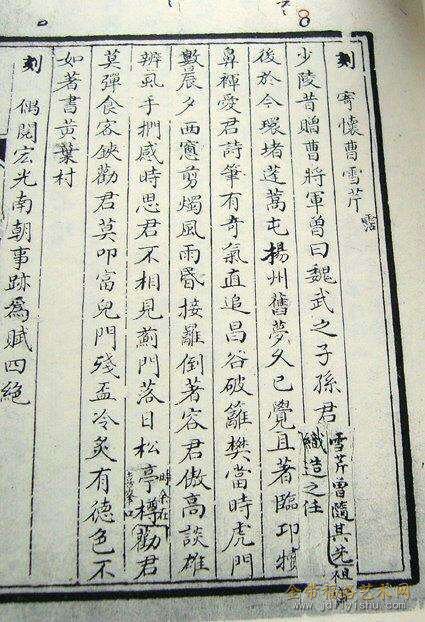 8
刻 寄懷曹雪芹 霑
少陵昔贈曹將軍曾曰魏武之子孫君
雪芹曾隨其先祖
織造之任
後於今環堵蓬蒿屯楊州舊夢久已覺且著臨邛犢
鼻褌愛君詩筆有奇氣直追昌谷破籬樊當時虎門
數晨夕西窻剪燭風雨昏接䍦倒著容君傲高談雄
辨虱手捫感時思君不相見薊門落日松亭樽勸君
時余在
喜峯口
莫彈食客鋏勸君莫叩富兒門殘盃冷炙有德色不
如著書黃葉村
刻 偶閱宏光南朝事跡為賦四絕